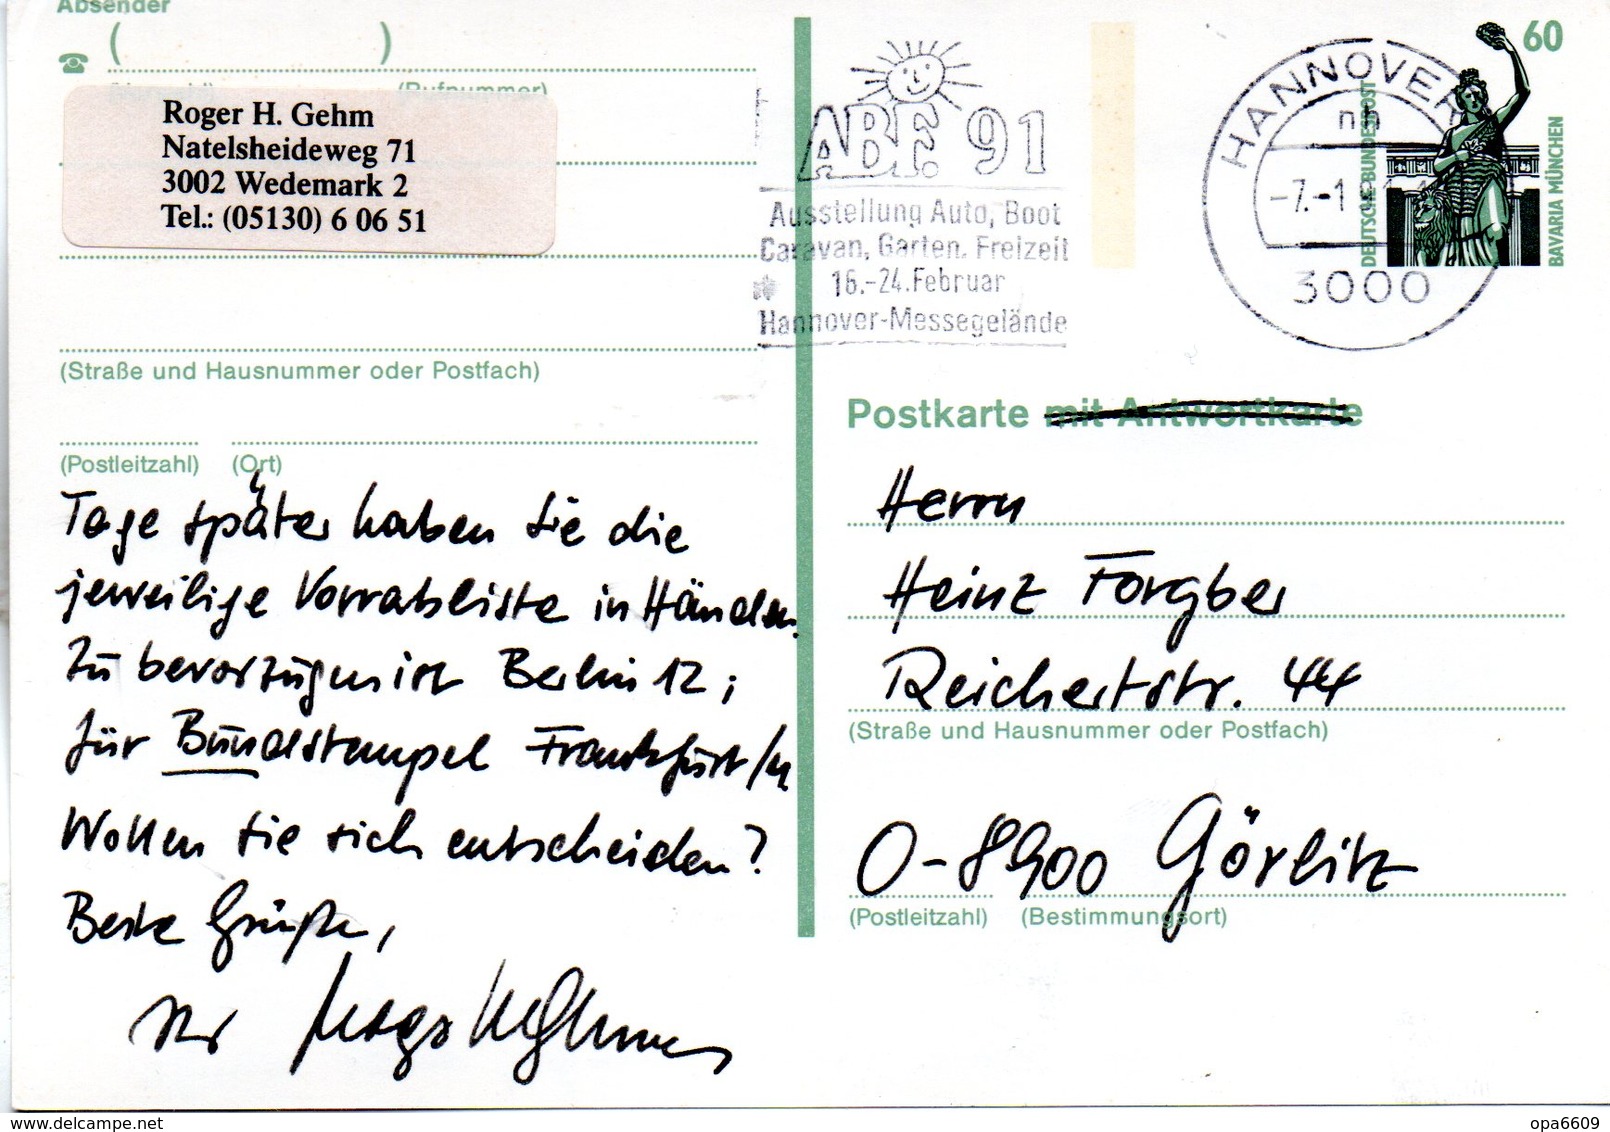 Absender
(                    )
(Rufnummer)
Roger H. Gehm
Natelsheideweg 71
3002 Wedemark 2
Tel.: (05130) 6 06 51
(Straße und Hausnummer oder Postfach)
(Postleitzahl) (Ort)
Tage später haben Sie die
jeweilige Vorratsliste in Händen.
Zu bevorzugen ist Berlin 12;
für Bundstempel Frankfurt/M
Wollen Sie sich entscheiden?
Beste Grüße,
Ihr
ABF. 91
Ausstellung Auto, Boot
Caravan, Garten, Freizeit
16.-24.Februar
Hannover-Messegelände
HANNOVER
nh
-7.-1
3000
60
DEUTSCHE BUNDESPOST
BAVARIA MÜNCHEN
Postkarte mit Antwortkarte
Herrn
Heinz Förgber
Reichertstr. 44
(Straße und Hausnummer oder Postfach)
O-8900 Görlitz
(Postleitzahl) (Bestimmungsort)
opa6609